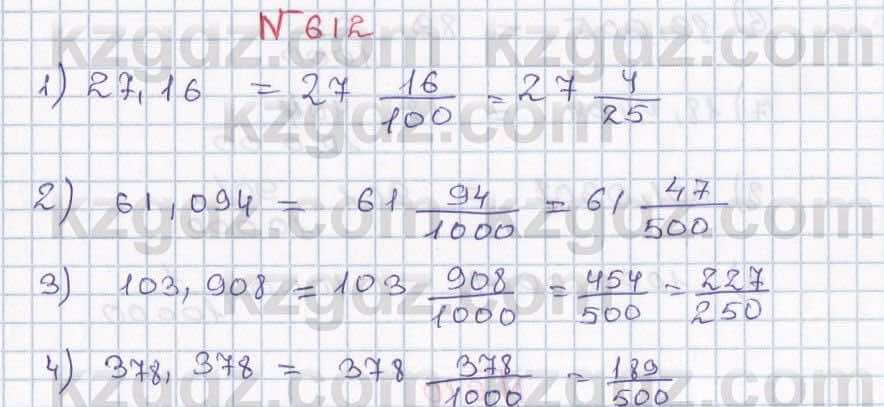 №612
1) 27,16 = 27 16/100 = 27 4/25
2) 61,094 = 61 94/1000 = 61 47/500
3) 103,908 = 103 908/1000 = 454/500 = 227/250
4) 378,378 = 378 378/1000 = 189/500
kzgdz.com kzgdz.com
kzgdz.com
kzgdz.com kzgdz.com
kzgdz.com
kzgdz.com kzgdz.com